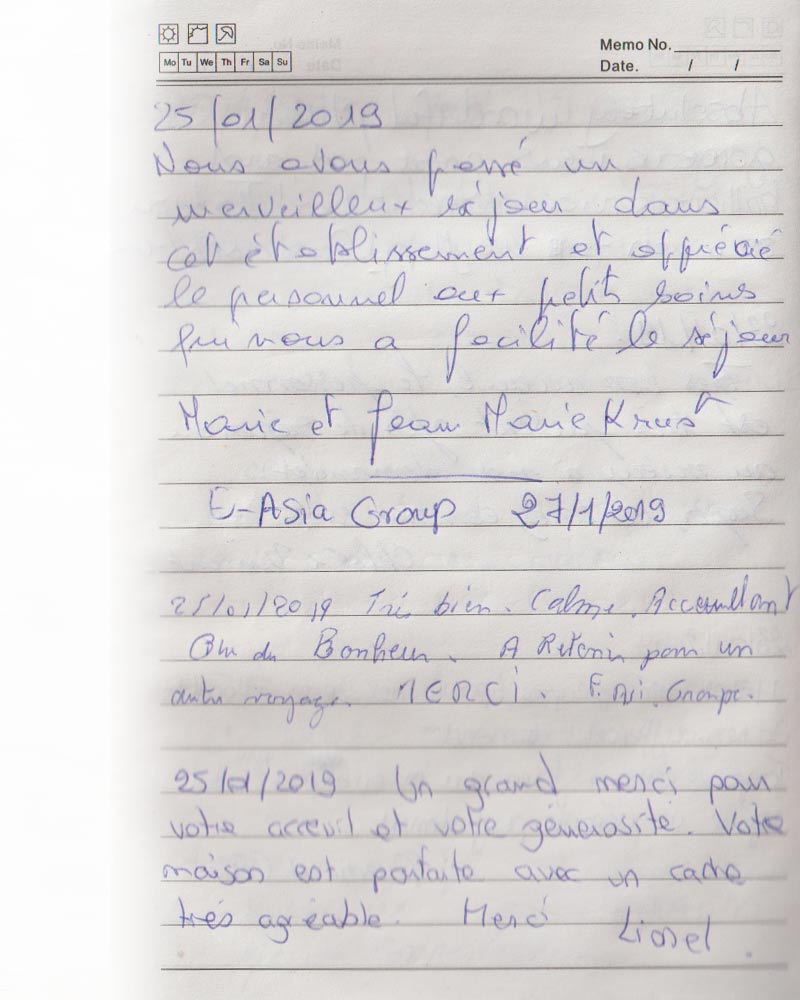 Memo No.
Mo Tu We Th Fr Sa Su
Date. / /
25/01/2019
Nous avons passé un
merveilleux séjour dans
cet établissement et apprécié
le personnel aux petits soins
qui nous a facilité le séjour
Marie et Jean Marie
E-Asia Group 27/1/2019
25/01/2019 Très bien. Calme. Accueillant
Du Bonheur. A Retenir pour un
autre voyage. MERCI.
25/01/2019 Un grand merci pour
votre acceuil et votre génerosité. Votre
maison est parfaite avec un cadre
trés agréable. Merci Lionel.